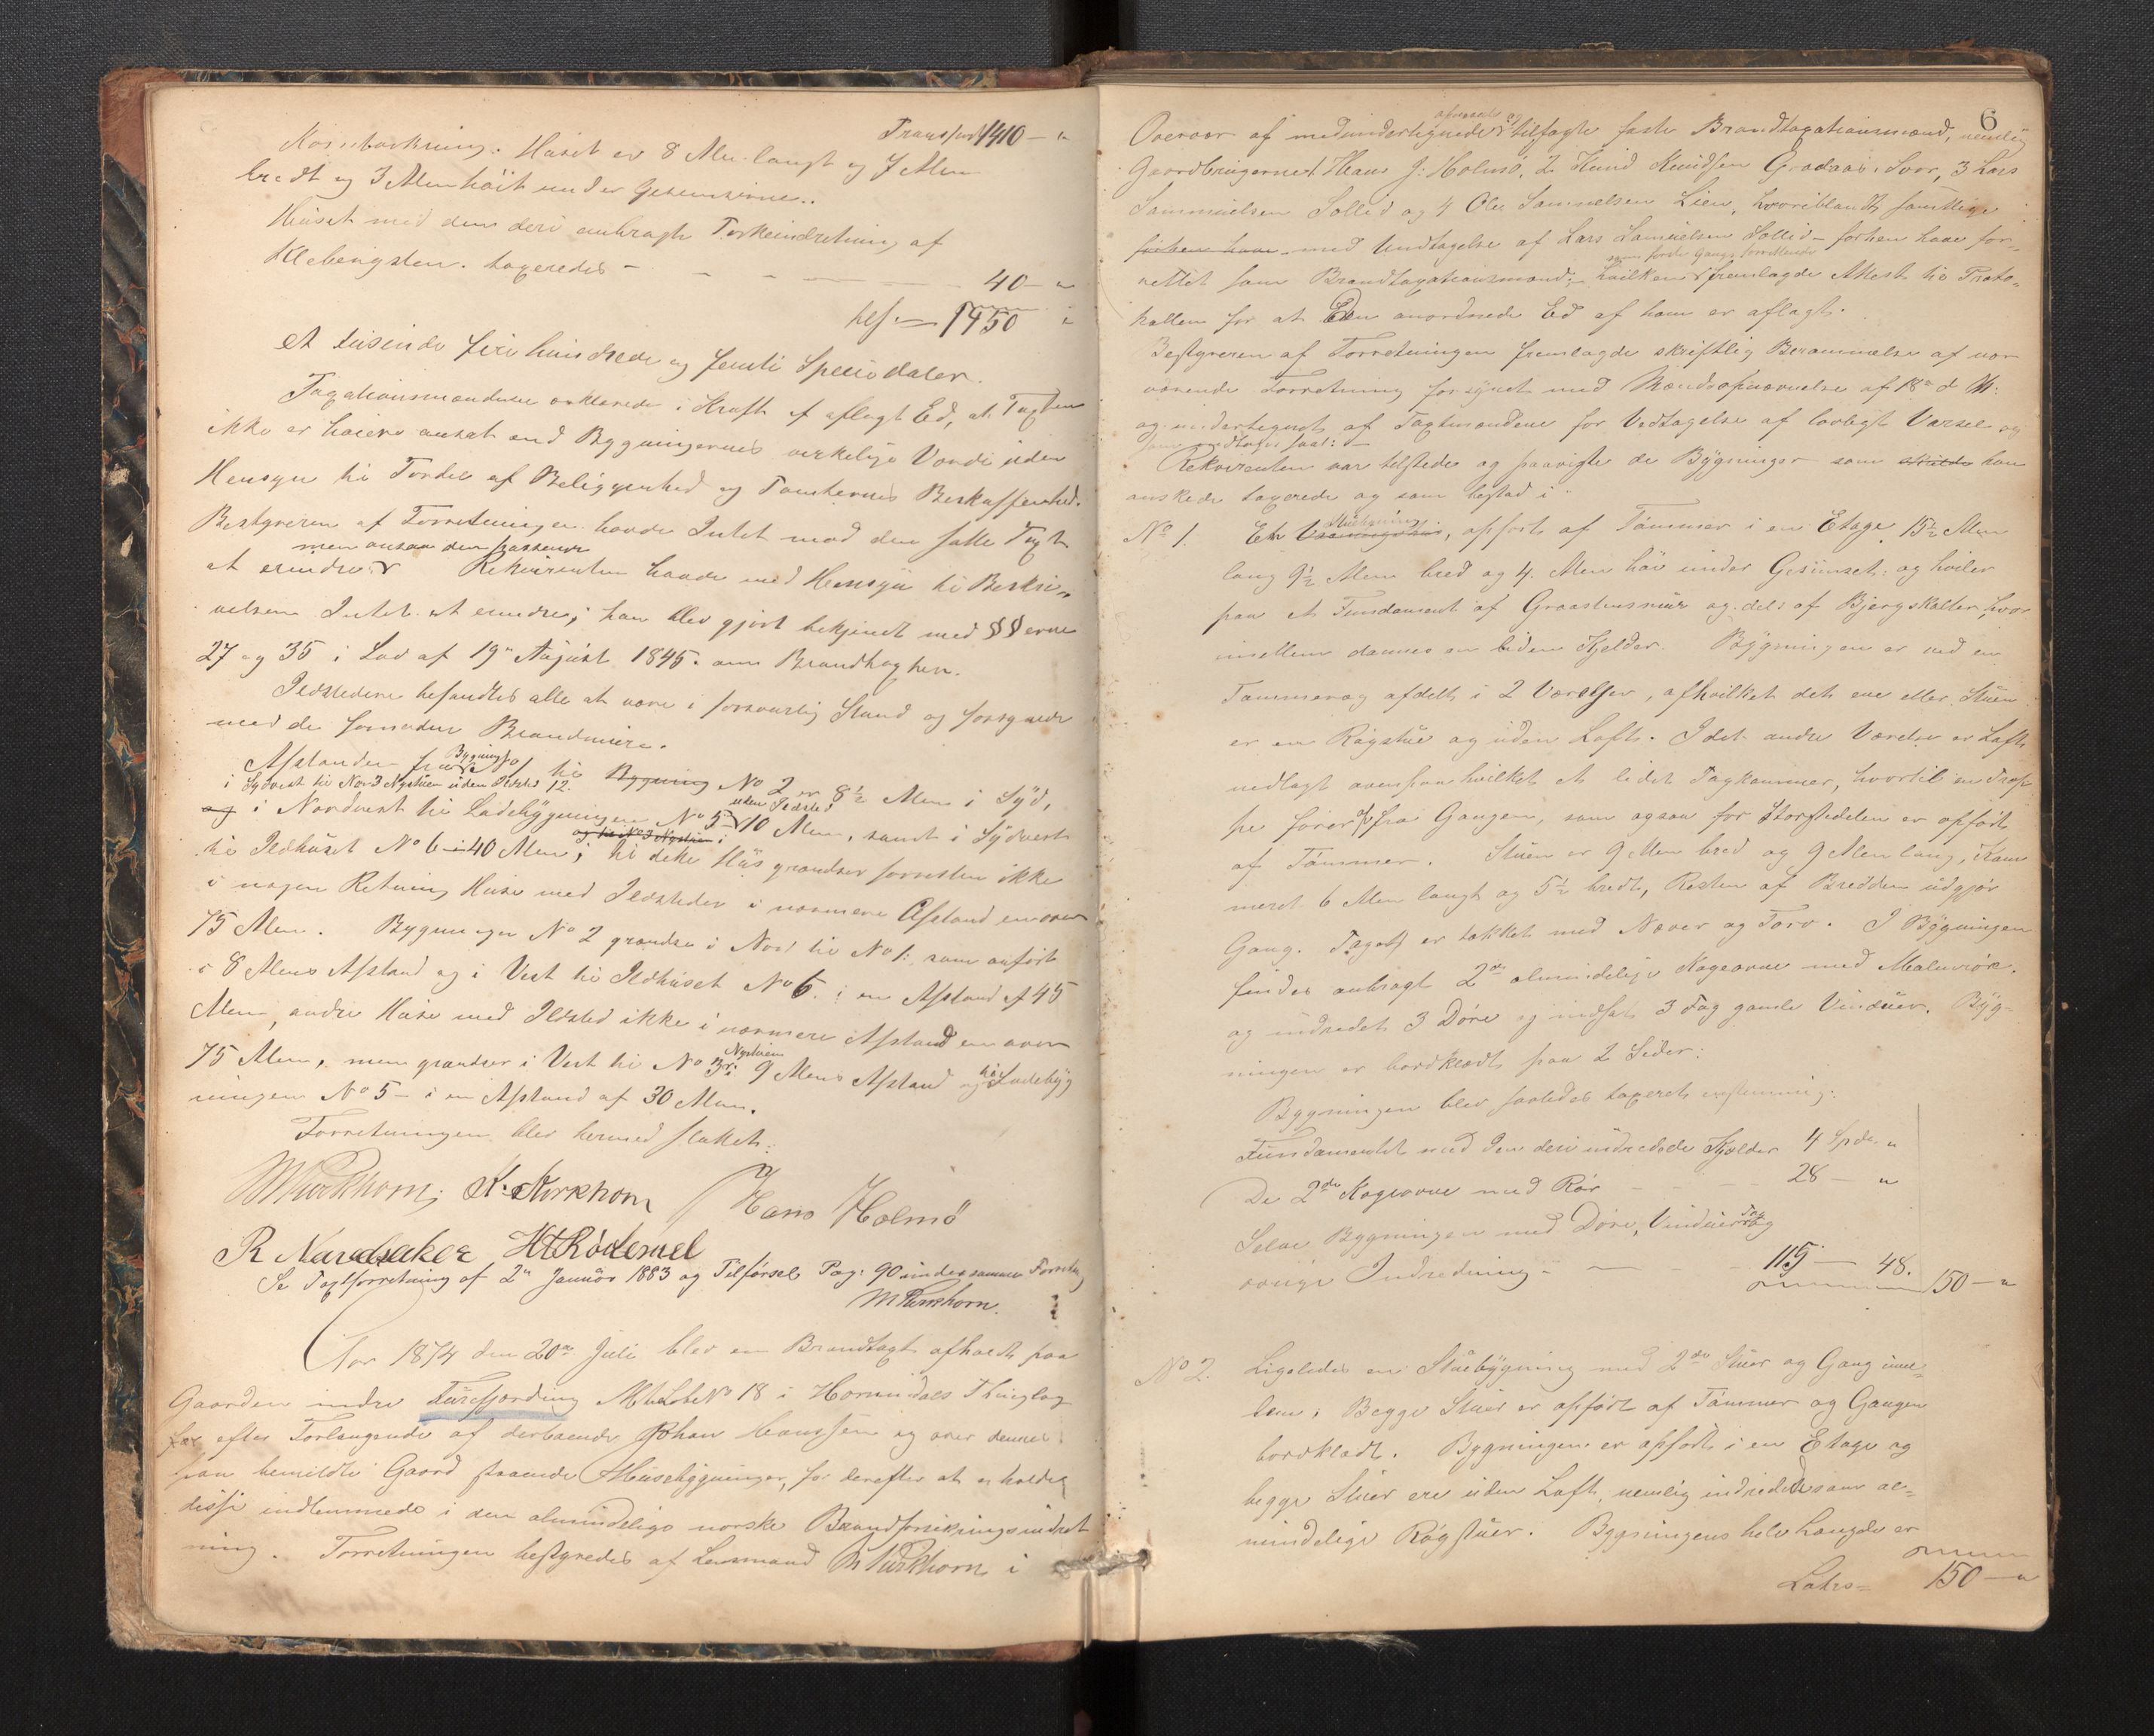 Transport 1410 – "
Korntørkning. Huset er 8 Alen langt og 7 Alen
bredt og 3 Alen høit under Gesemserne.
Huset med dem deri anbragte Tørkeindretning af
Klebergsten. taxeredes – 40 – "
1450
et tusinde fire hundrede og femti Speciedaler.
Taxationsmændene erklærede i Kraft af aflagt Ed, at Taxten
ikke er høiere ansat end Bygningernes virkelige Værdi uden
Hensyn til Fordel af Beliggenhed og Tomternes Beskaffenhed.
Bestyreren af Forretningen havde Intet mod den satte Taxt
men ansaa den passende
at erindre. Rekvirenten havde med Hensyn til Beskri-
velsen Intet at erindre; han blev gjort bekjendt med §§erne
27 og 35 i Lov af 19de August 1845. om Brandtaxten.
Ildstederne befandtes alle at være i forsvarlig Stand og forsynede
med de fornødne Brandmure.
Afstanden fra Bygning No 1 til Bygning No 2 er 8½ Alen i Syd,
i Sydvest til No 3 Nystuen uden Ildsted 12.
og i Nordvest til Ladebygningen No 5 uden Ildsted 10 Alen, samt i Sydvest
og til No 3 Nystuen i
til Ildhuset No 6 – 40 Alen; til dette Huus grændser forresten ikke
i nogen Retning Huse med Ildsteder i nærmere Afstand end over
75 Alen. Bygningen No 2 grændser i Nord til No 1. som anført
i 8 Alens Afstand og i Vest til Ildhuset No 6. i en Afstand af 45
Alen, andre Huse med Ildsted ikke i nærmere Afstand end over
75 Alen, men grændser i Vest til No 3 Nystuen i 9 Alens Afstand og til Ladebyg
ningen No 5 – i en Afstand af 30 Alen.
Forretningen blev hermed sluttet.
M Kirkhorn. K. Kirkhorn Hans Holmö
R Navelsaker
Se Taxtforretning af 2den Januar 1883 og Tilførsel Pag: 90 under samme Forretng
M Kirkhorn.
Aar 1874 den 20de Juli blev en Brandtaxt afholdt paa
Gaarden indre Tuxefjording Mt. Løbe No 18 i Hornindals Thinglag
efter Forlangende af derboende Johan Hanssen og over dennes
paa bemeldte Gaard staaende Huusebygninger, for derefter at erholdes
disse indlemmede i den almindelige norske Brandforsikringsindret
ning. Forretningen bestyredes af Lensmand M Kirkhorn i
6
Overvær af medundertegnede tilsagte faste Brandtaxationsmænd, nemlig
Gaardbrugerne 1 Hans J: Holmö, 2 Knud Knudsen, 3 Lars
Sammuelsen Sollid og 4 Ole Samuelsen Lien, hvoriblandt samtlige
med Undtagelse af Lars Samuelsen Sollid – forhen have for-
rettet som Brandtaxationsmænd; hvilken fremlagde Attest til Proto-
kollen for at den anordnede Ed af ham er aflagt.
Bestyreren af Forretningen fremlagde skriftlig Berammelse af nær
værende Forretning forsynet med Mændsopnævnelse af 18de d M:
og undertegnet af Taxtmændene for Vedtagelse af lovligt Varsel og
Rekvirenten var tilstede og paaviste de Bygninger som han
ønskede taxerede og som bestod i:
No 1. En Stuebygning, opført af Tømmer i en Etage, 15½ Alen
lang 9½ Alen bred og 4. Alen høi under Gesimset. og hviler
paa et Fundament af Graasteensmuur og dels af Bjergskalter, hvor
imellem dannes en liden Kjelder. Bygningen er ved en
Tømmervæg afdelt i 2 Værelser, afhvilket det ene eller Stuen
er en Røgstue og uden Loft. I det andre Værelse er Loft
nedlagt ovenpaa hvilket et lidet Tagkammer, hvortil en Trap
pe fører fra Gangen, som ogsaa for Størstedelen er opført
af Tømmer. Stuen er 9 Alen bred og 9 Alen lang, Kam
meret 6 Alen langt og 5½ bredt, Resten af Bredden udgjør
Gang. Taget er takket med Næver og Torv. I Bygningen
findes anbragt 2de almindelige Kogeovne med Malmrør.
og indredet 3 Døre og indsat 3 Fag gamle Vinduer. Byg-
ningen er bordklædt paa 2 Sider:
Bygningen blev saaledes taxeret:
Fundamentet med den deri indredede Kjelder 4 Spd. "
De 2de Kogeovne med Rør – 28 – "
Selve Bygningen med Døre, Vinduer Tag og
øvrige Indredning – 115 – 48. 150 – "
No 2. Ligeledes en Stuebygning med 2de Stuer og Gang imel-
lem; Begge Stuer er opført af Tømmer og Gangen
bordklædt. Bygningen er opført i en Etage og
begge Stuer ere uden Loft, nemlig indredede som al-
mindelige Røgstuer. Bygningens hele Længde er
Latus 150 – "